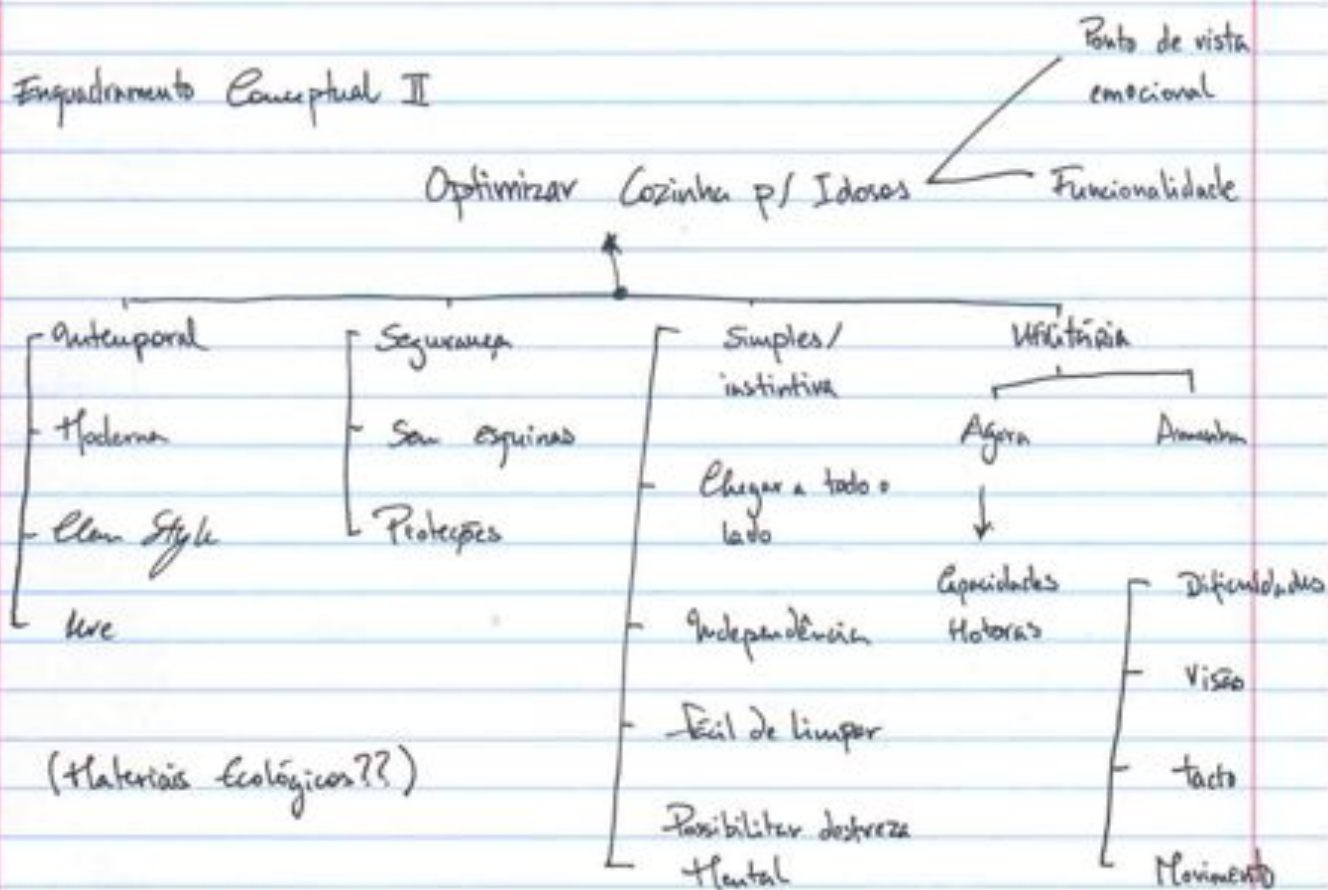 Ponto de vista
emocional
Enquadramento Conceptual II
Optimizar Cozinha p/ Idosos
Funcionalidade
Intemporal
Moderna
Clean Style
Leve
Segurança
Sem esquinas
Proteções
Simples/
instintiva
Chegar a todo o
lado
Independência
Fácil de limpar
Possibilitar destreza
Mental
Utilitária
Agora
Amanha
Capacidades
Motoras
Dificuldades
Visão
tacto
Movimento
(Materiais Ecológicos??)